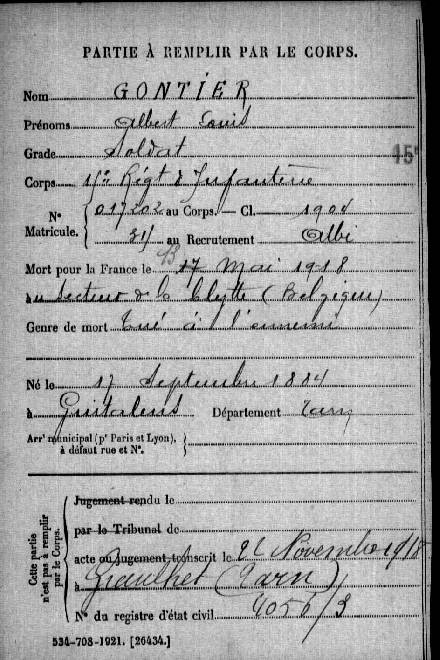 PARTIE À REMPLIR PAR LE CORPS.
Nom GONTIER
Prénoms Albert Louis
Grade Soldat 15
Corps 15e Régt d'Infanterie
N° Matricule. { 017202 au Corps. — Cl. 1904
au Recrutement Albi
Mort pour la France le 17 Mai 1918
au Secteur de la Clytte (Belgique)
Genre de mort Tué à l'ennemi
Né le 17 Septembre 1884
à Guitalens Département Tarn
Arrt municipal (pr Paris et Lyon), à défaut rue et N°. }
Cette partie n'est pas à remplir par le Corps.
Jugement rendu le
par le Tribunal de
acte ou jugement transcrit le Novembre 1918
à Graulhet (Tarn)
N° du registre d'état civil 4056/3
534-708-1921. [26434.]